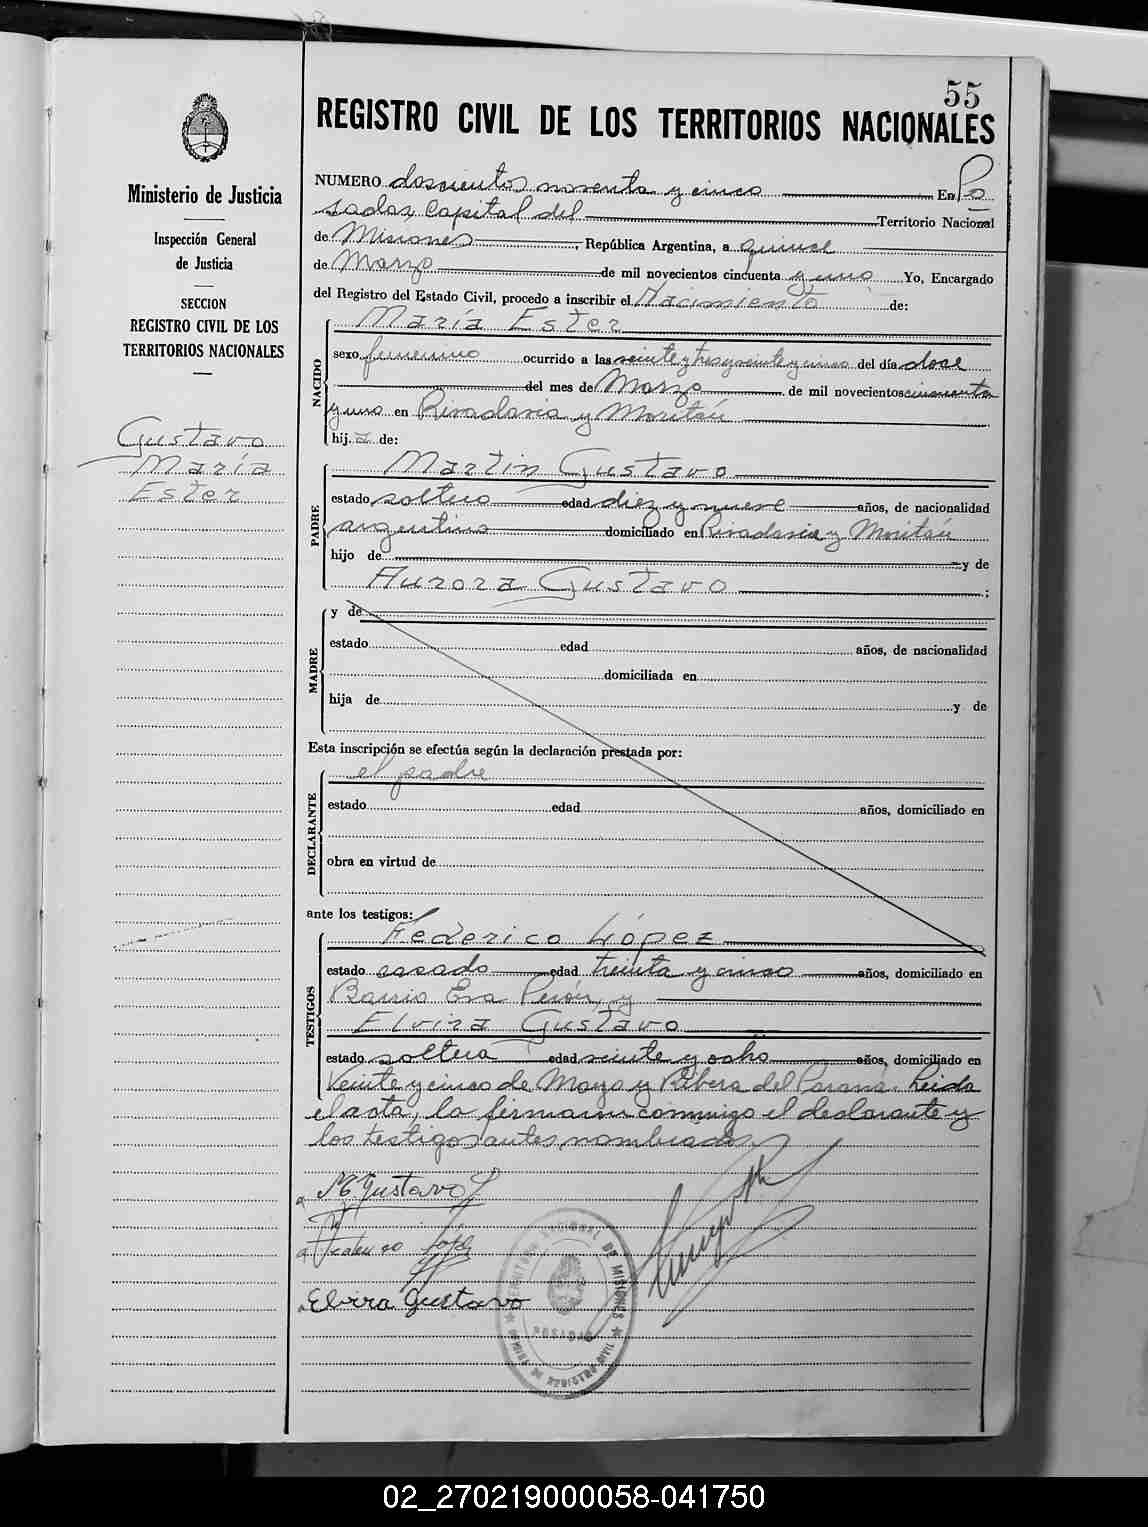 55
REGISTRO CIVIL DE LOS TERRITORIOS NACIONALES
Ministerio de Justicia
Inspección General
de Justicia
SECCION
REGISTRO CIVIL DE LOS
TERRITORIOS NACIONALES
Gustavo
María
Ester
NUMERO doscientos noventa y cinco En Po
sadas Capital del Territorio Nacional
de Misiones, República Argentina, a quince
de Marzo de mil novecientos cincuenta y uno Yo, Encargado
del Registro del Estado Civil, procedo a inscribir el Nacimiento de:
NACIDO
María Ester
sexo femenino ocurrido a las veinte y tres y veinte y cinco del día doce
del mes de Marzo de mil novecientos cincuenta
y uno en Rivadavia y Moritán
hija de:
PADRE
Martin Gustavo
estado soltero edad diez y nueve años, de nacionalidad
argentino domiciliado en Rivadavia y Moritán
hijo de y de
Aurora Gustavo;
MADRE
y de
estado edad años, de nacionalidad
domiciliada en
hija de y de
Esta inscripción se efectúa según la declaración prestada por:
DECLARANTE
el padre
estado edad años, domiciliado en
obra en virtud de
ante los testigos:
TESTIGOS
Federico López
estado casado edad treinta y cinco años, domiciliado en
Barrio Eva Perón, y
Elvira Gustavo
estado soltera edad veinte y ocho años, domiciliado en
Veinte y cinco de Mayo y Ribera del Paraná. Leida
el acta, la firman conmigo el declarante y
los testigos antes nombrados
M Gustavo
Federico López
Elvira Gustavo
TERRITORIO NACIONAL DE MISIONES
POSADAS
OFICINA DE REGISTRO CIVIL
02_270219000058-041750